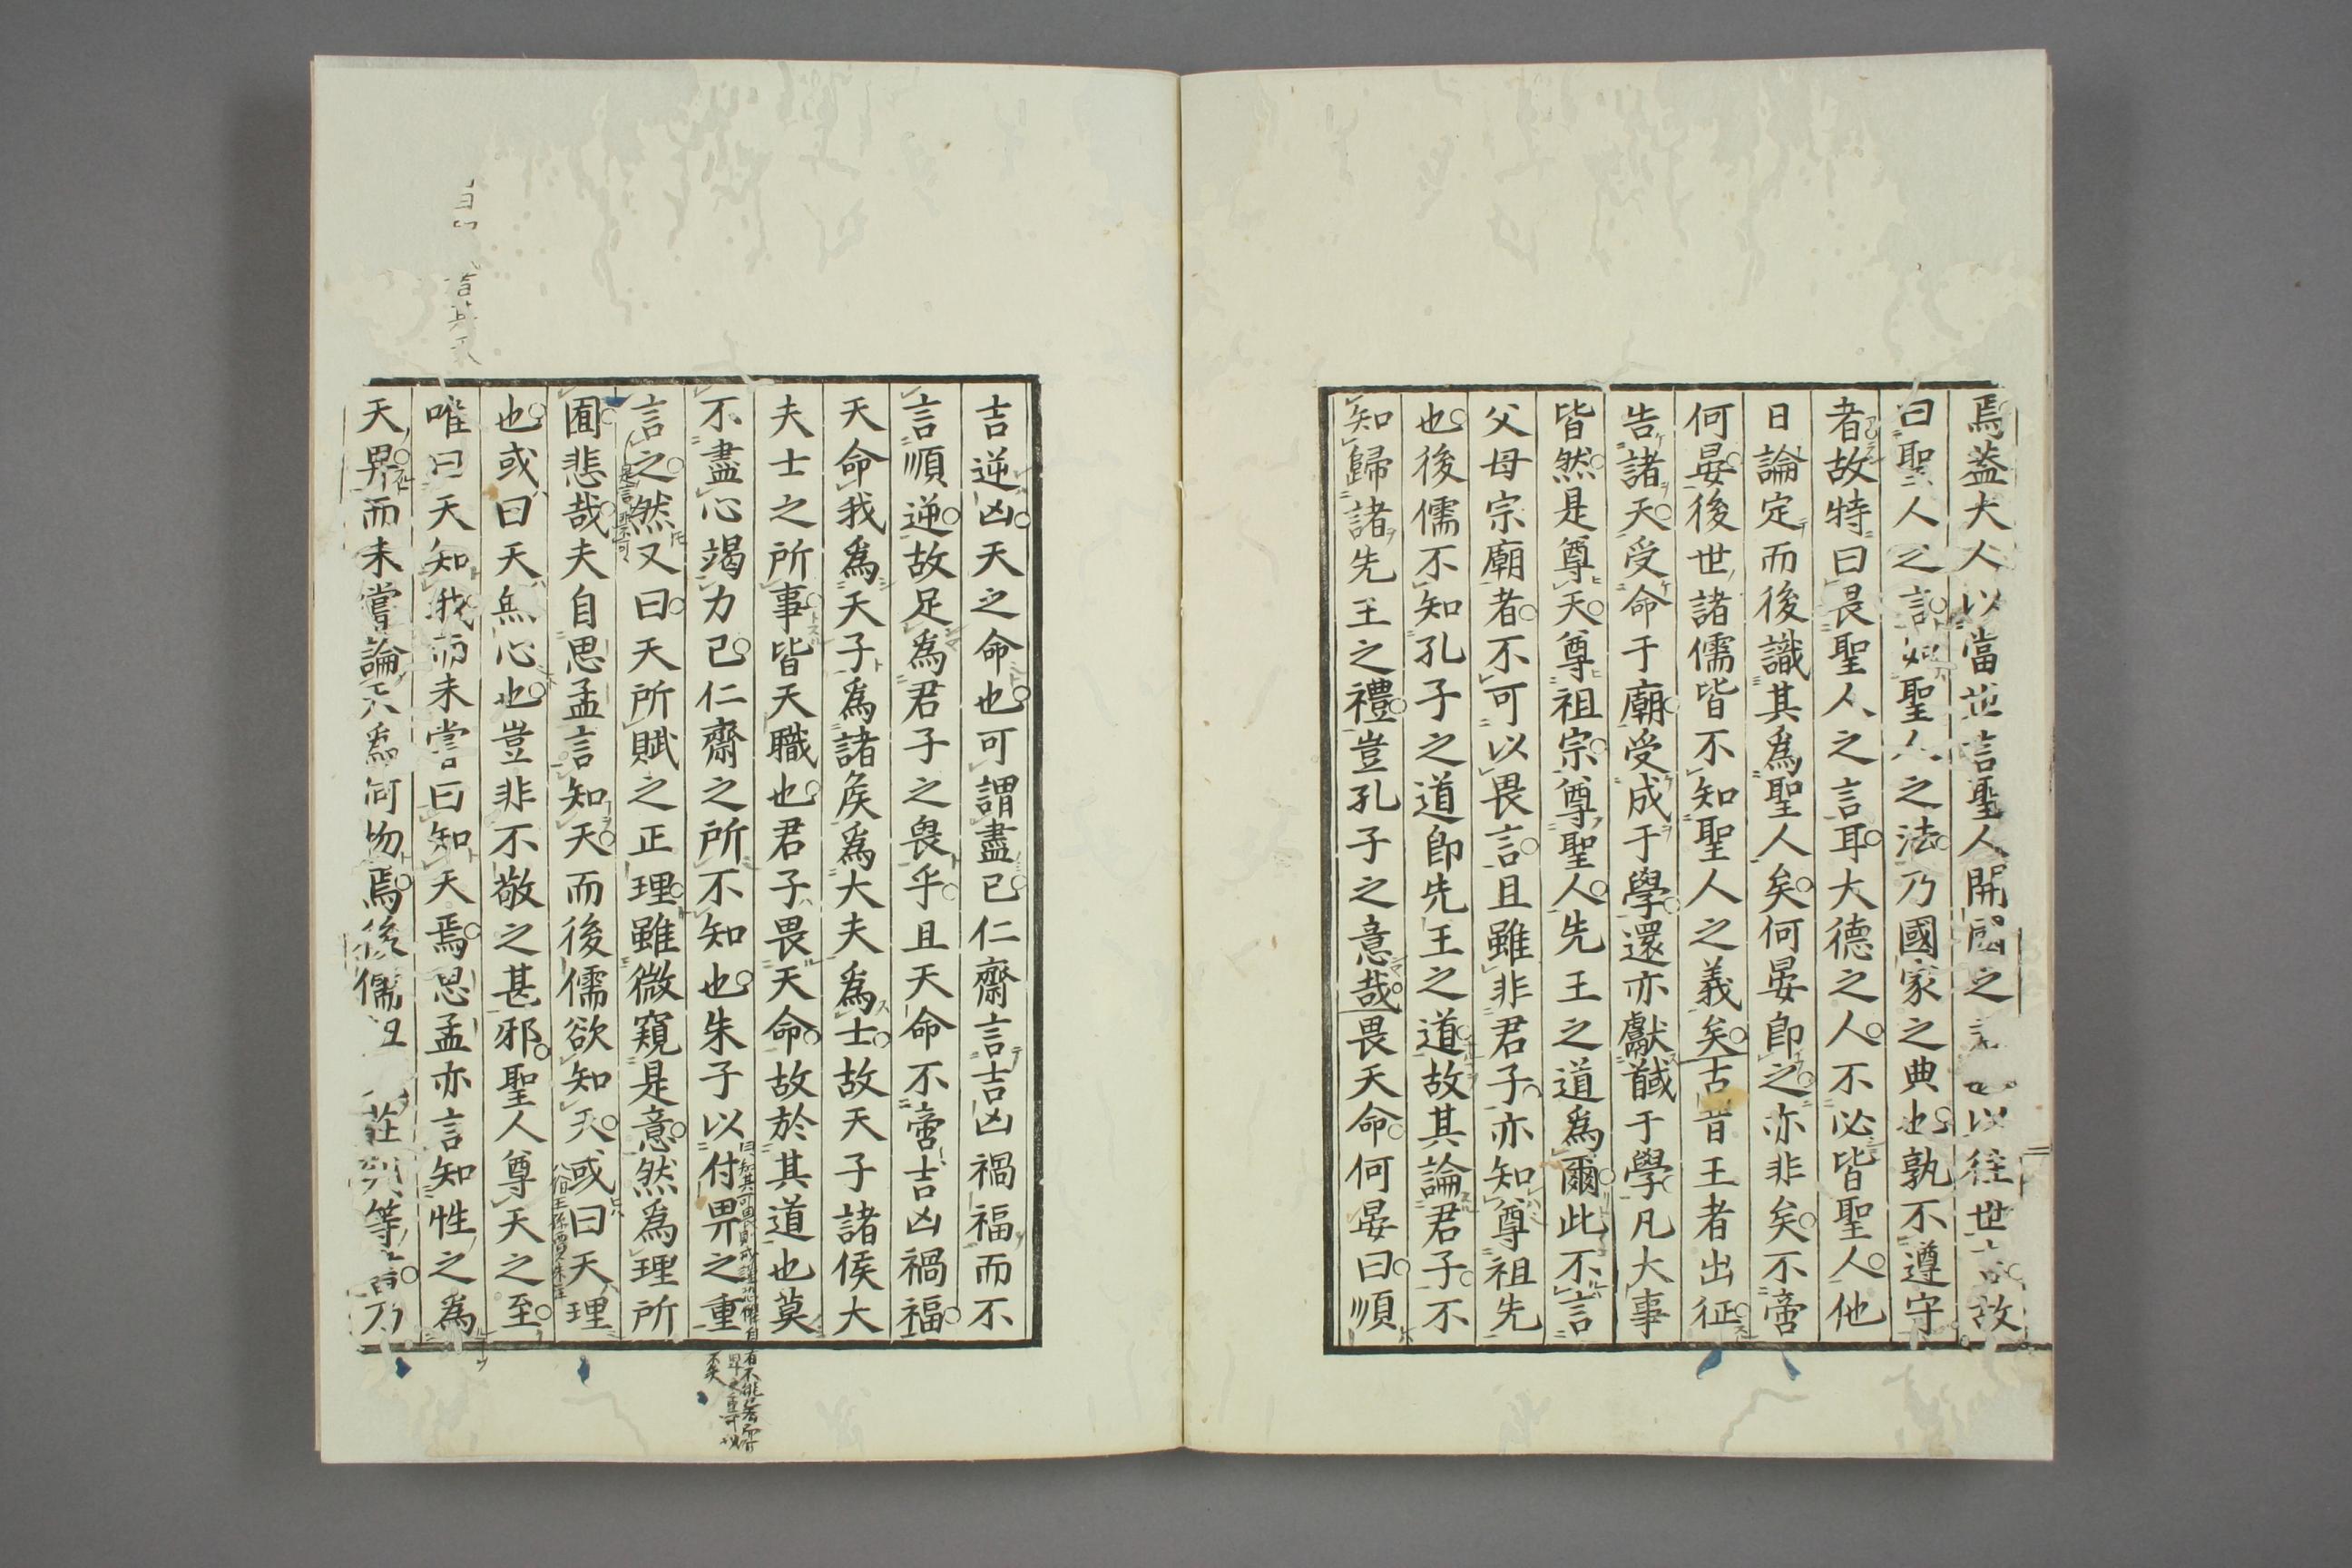 焉蓋大人以當世言聖人開國之以往世故
曰聖人之言如聖人之法乃國家之典也孰不遵守
者故特曰畏聖人之言耳大德之人不必皆聖人他
日論定而後識其爲聖人矣何晏卽之亦非矣不啻
何晏後世諸儒皆不知聖人之義矣古昔王者出征
告諸天受命于廟受成于學還亦獻馘于學凡大事
皆然是尊天尊祖宗尊聖人先王之道爲爾此不言
父母宗廟者不可以畏言且雖非君子亦知尊祖先
也後儒不知孔子之道卽先王之道故其論君子不
知歸諸先王之禮豈孔子之意哉畏天命何晏曰順
吉逆凶天之命也可謂盡已仁齋言吉凶禍福而不
言順逆故足爲君子之畏乎且天命不啻吉凶禍福
天命我爲天子爲諸矦爲大夫爲士故天子諸侯大
夫士之所事皆天職也君子畏天命故於其道也莫
不盡心竭力已仁齋之所不知也朱子以付畀之重
言之然又曰天所賦之正理雖微窺是意然爲理所
囿悲哉夫自思孟言知天而後儒欲知天或曰天理
也或曰天無心也豈非不敬之甚邪聖人尊天之至
唯曰天知我而未嘗曰知天焉思孟亦言知性之爲
天畀而未嘗論天爲何物焉後儒狃莊列等言乃